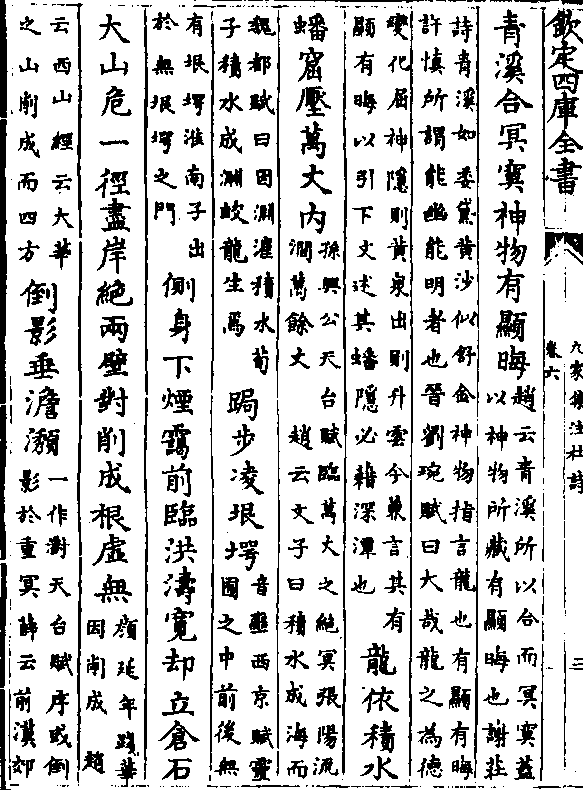 欽定四庫全書
九家集注杜詩
卷六
三
青溪合冥寞神物有顯晦
趙云青溪所以合而冥寞蓋
以神物所藏有顯晦也謝莊
詩青溪如委黛黄沙似舒金神物指言龍也有顯有晦
許慎所謂能幽能明者也晉劉琬賦曰大哉龍之為德
變化屈神隱則黄泉出則升雲今兼言其有
顯有晦以引下文述其蟠隱必藉深潭也
龍依積水
蟠窟壓萬丈内
孫興公天台賦臨萬丈之絶冥張陽流
澗萬餘丈 趙云文子曰積水成海而
魏都賦曰回淵灌積水荀
子積水成淵蛟龍生焉
跼步凌垠堮
音 西京賦靈
囿之中前後無
有垠堮淮南子出
於無垠堮之門
側身下煙靄前臨洪濤寛却立倉石
大山危一徑盡岸絶兩壁對削成根虚無
顔延年踐華
因削成 趙
云西山經云大華
之山削成而四方
倒影垂澹瀩
一作濧天台賦序或倒
影於重冥薛云前漢郊